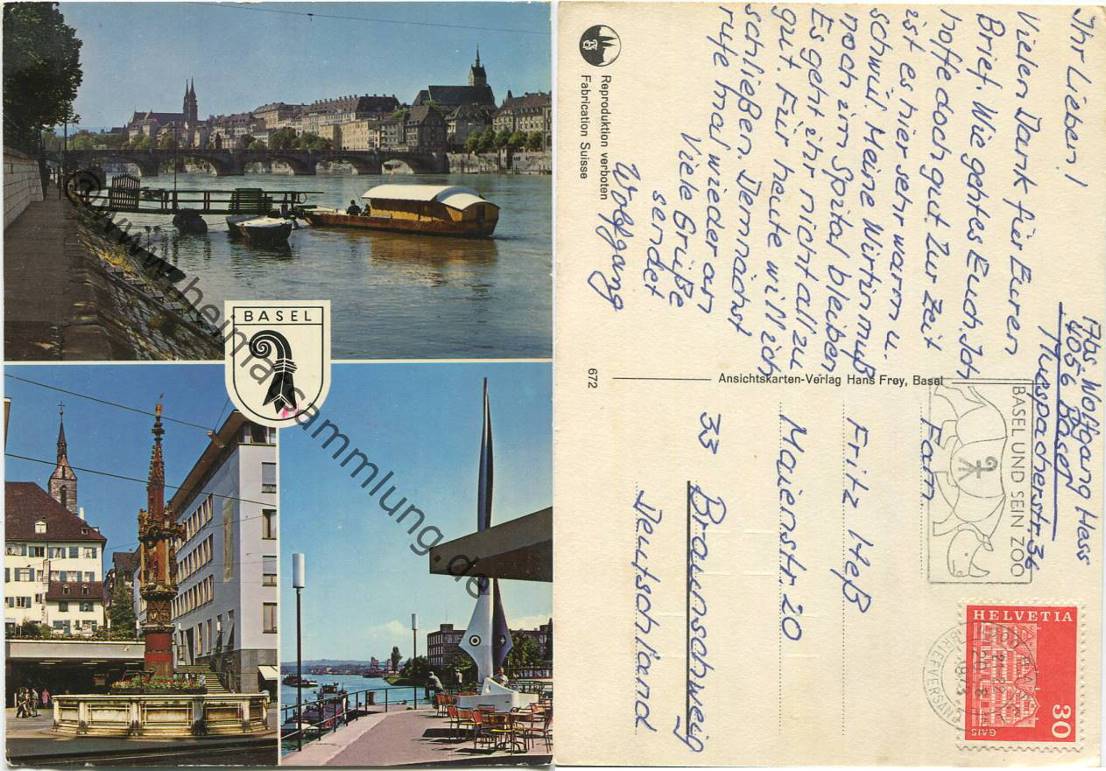 BASEL
© www.heimatsammlung.de
Ihr Lieben!
Vielen Dank für Euren
Brief. Wie geht es Euch. Ich
hoffe doch gut. Zur Zeit
ist es hier sehr warm u.
schwül. Meine Wirtin muß
noch im Spital bleiben
Es geht ihr nicht allzu
gut. Für heute will ich
schließen. Demnächst
rufe mal wieder an
Viele Grüße
sendet
Wolfgang
Reproduktion verboten
Fabrication Suisse
672
Ansichtskarten-Verlag Hans Frey, Basel
Abs. Wolfgang Hess
4056 Basel
Muespacherstr. 36
BASEL UND SEIN ZOO
HELVETIA
GAIS
30
BRIEFVERSAND
Fam.
Fritz Heß
Maienstr. 20
33 Braunschweig
Deutschland